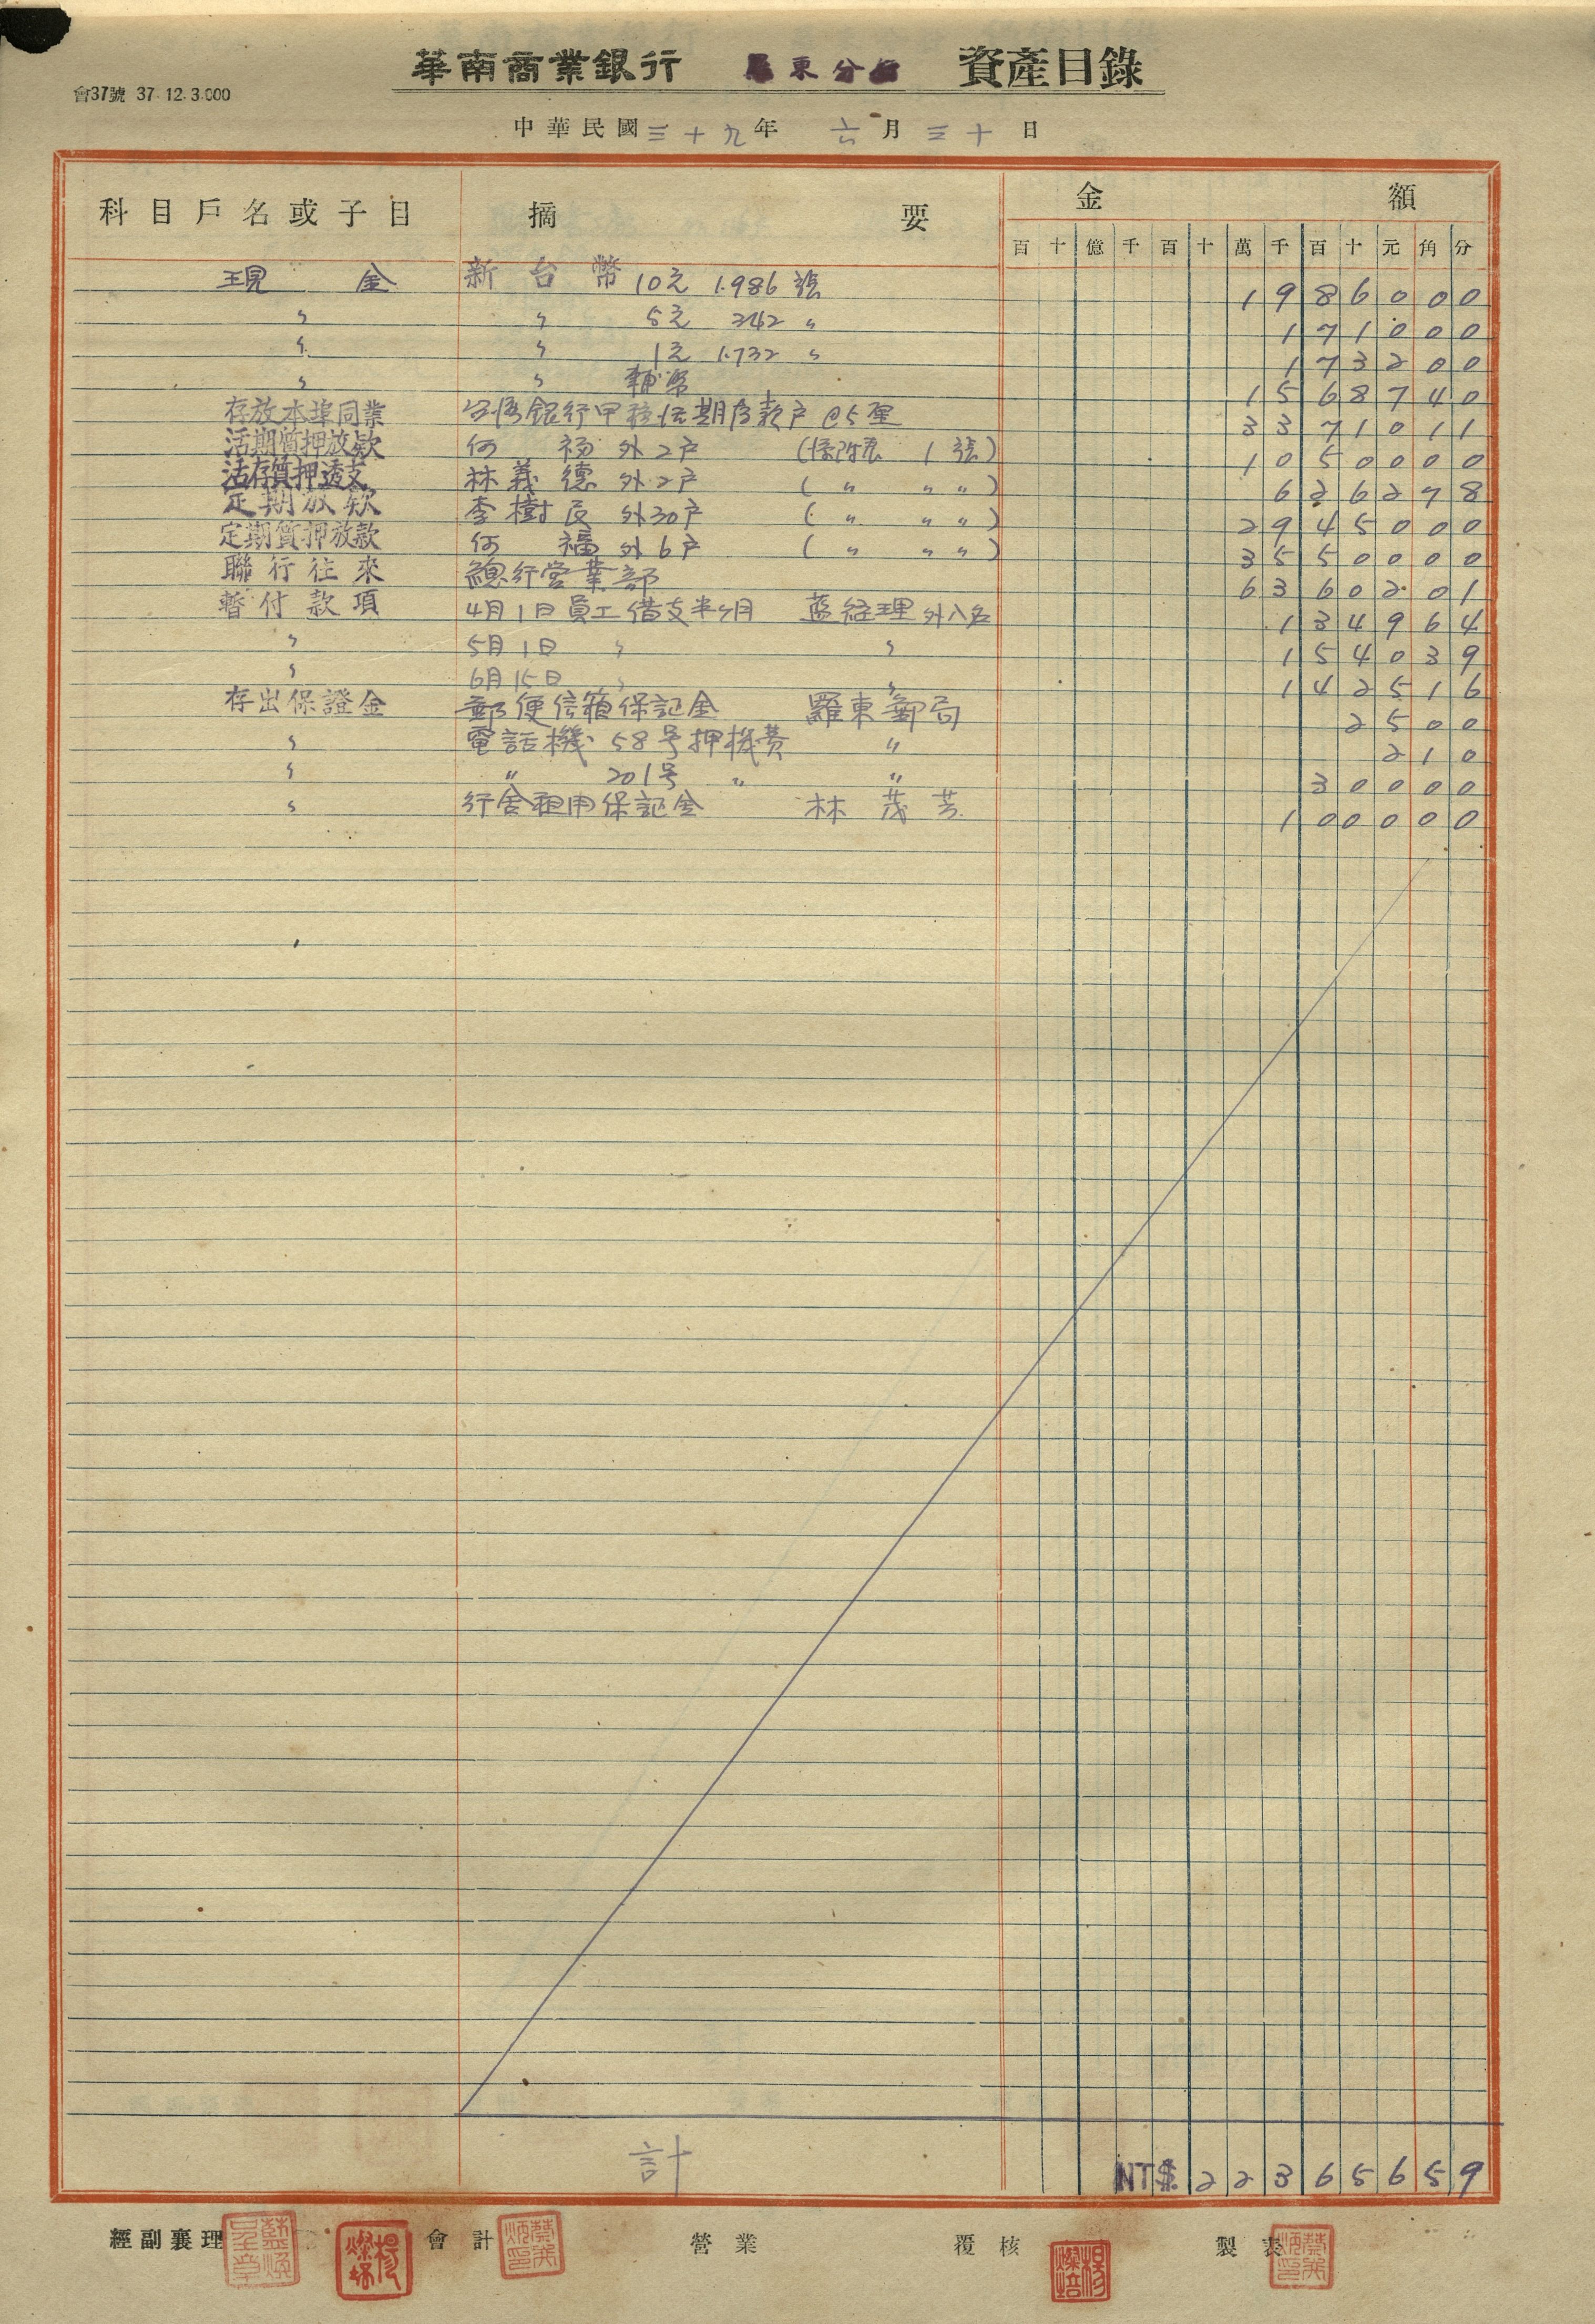 華南商業銀行 羅東分行 資產目錄
會37號 37.12.3.000
中華民國三十九年 六月三十日
科目戶名或子目 摘要 金額
百十億千百十萬千百十元角分
現金 新台幣 10元 1.986張 1986000
〃 〃 5元 342〃 171000
〃 〃 1元 1.732〃 173200
〃 〃 輔幣 1568740
存放本埠同業 銀行甲種活期存款戶 @5厘 3371011
活期質押放款 何 外2戶 ( 1張) 1050000
活存質押透支 林義德 外2戶 (〃 〃〃) 626278
定期放款 李樹 外30戶 (〃 〃〃) 2945000
定期質押放款 何福 外6戶 (〃 〃〃) 3550000
聯行往來 總行營業部 6360201
暫付款項 4月1日員工借支半ケ月 藍經理外八名 134964
〃 5月1日 〃 〃 154039
〃 6月15日 〃 〃 142516
存出保證金 郵便信箱保証金 羅東郵局 2500
〃 電話機 58号押機費 〃 210
〃 〃 201号 〃 〃 30000
〃 行舍租用保証金 林茂 100000
計 NT$ 22365659
經副襄理 會計 營業 覆核 製表